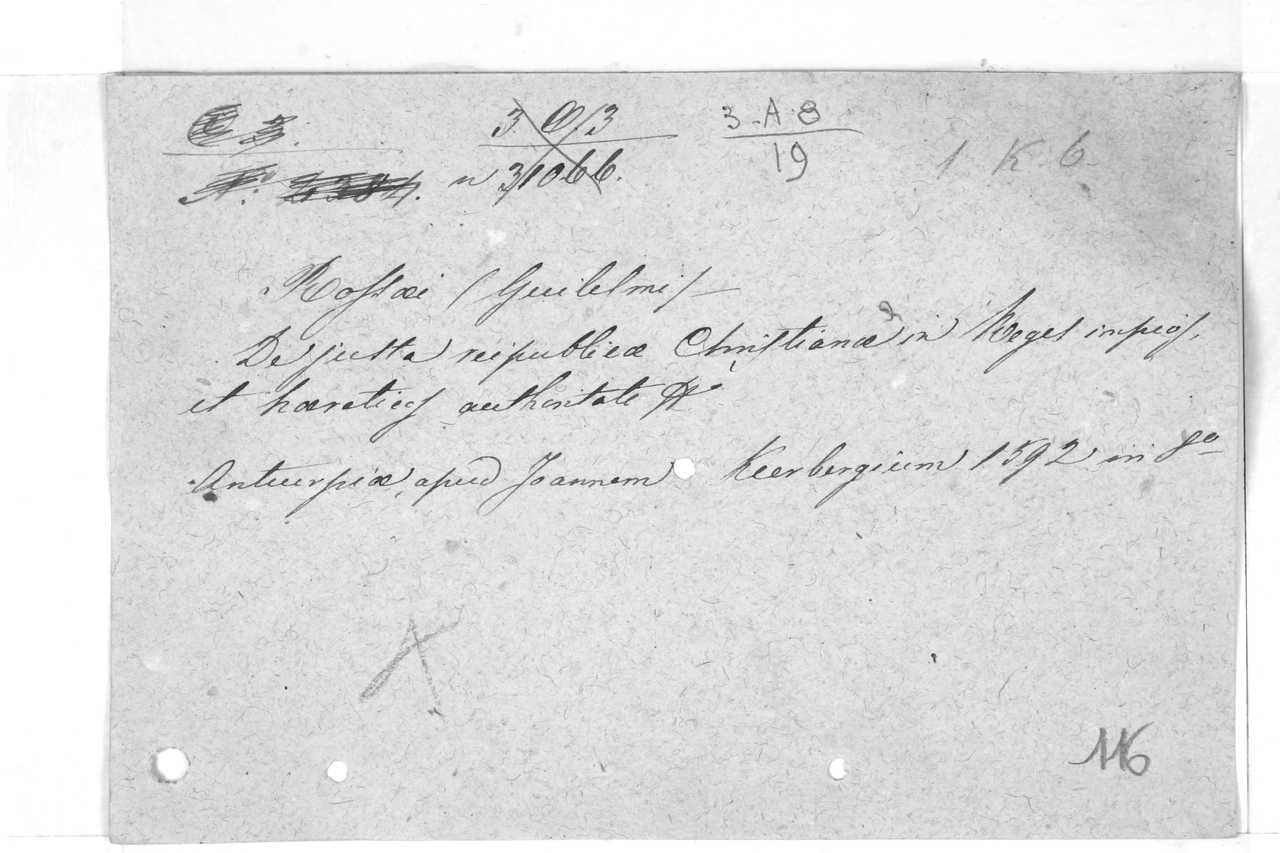 3 O/3 3-A-8
n 31066. 19 1 K 6
Rossæi (Guilelmi) —
De justa reipublicæ Christianæ in Reges impios,
et hæreticos authoritate &
Antuerpiæ, apud Joannem Keerbergium 1592 in 8º
116